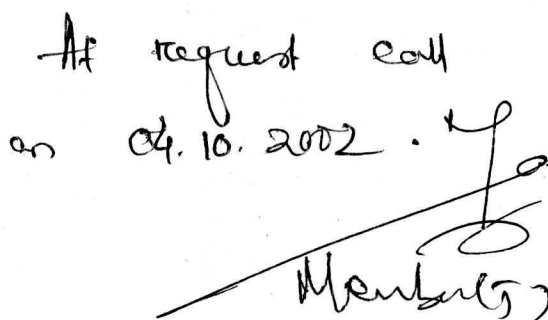 At request call
on 04.10.2002.
Member(J)